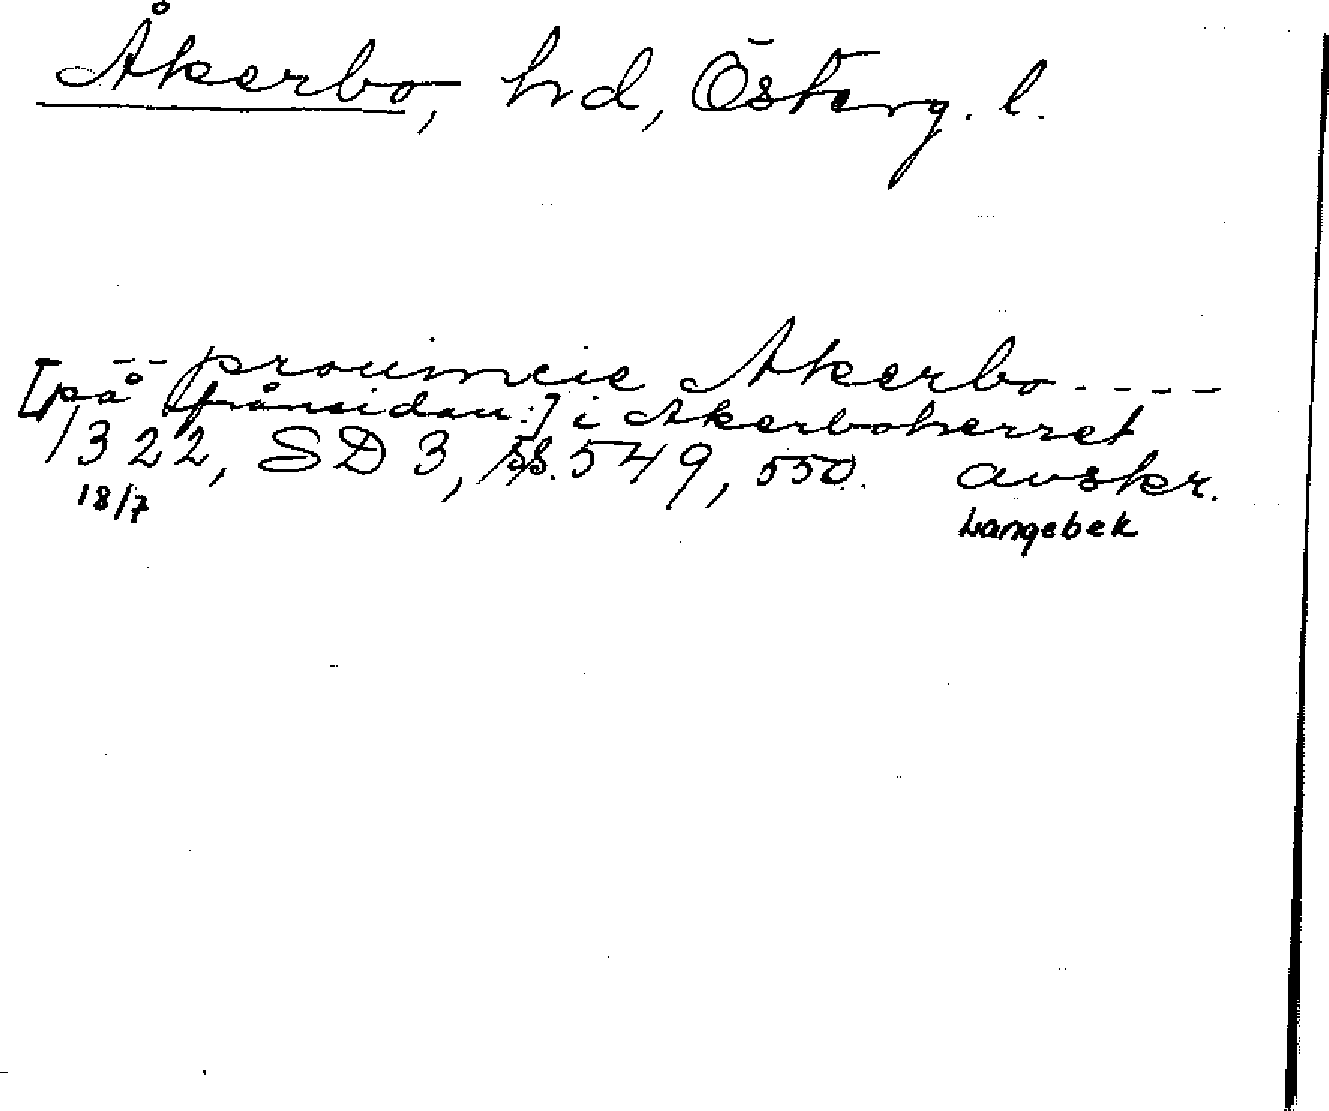 Åkerbo, hd, Österg. l.
-- prouincie Akerbo ----
[på frånsidan:] i Akerboherret
1322, SD 3, ss. 549, 550. avskr.
18/7 Langebek